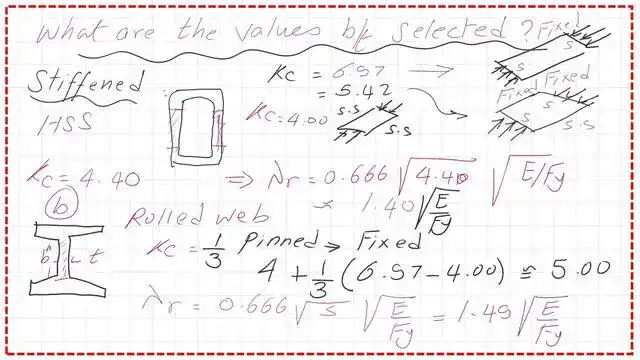 What are the values b/t selected?
Fixed
Stiffened
Kc = 6.97
= 5.42
S
S
Fixed
Fixed
S
S.S
HSS
Kc=4.00
S.S
S.S
Kc=4.40
⇒ λr = 0.666 √4.40 √E/Fy
≈ 1.40 √E/Fy
b
Rolled web
Kc = 1/3 Pinned → Fixed
b
t
4 + 1/3 (6.97-4.00) ≅ 5.00
λr = 0.666 √5 √E/Fy = 1.49 √E/Fy